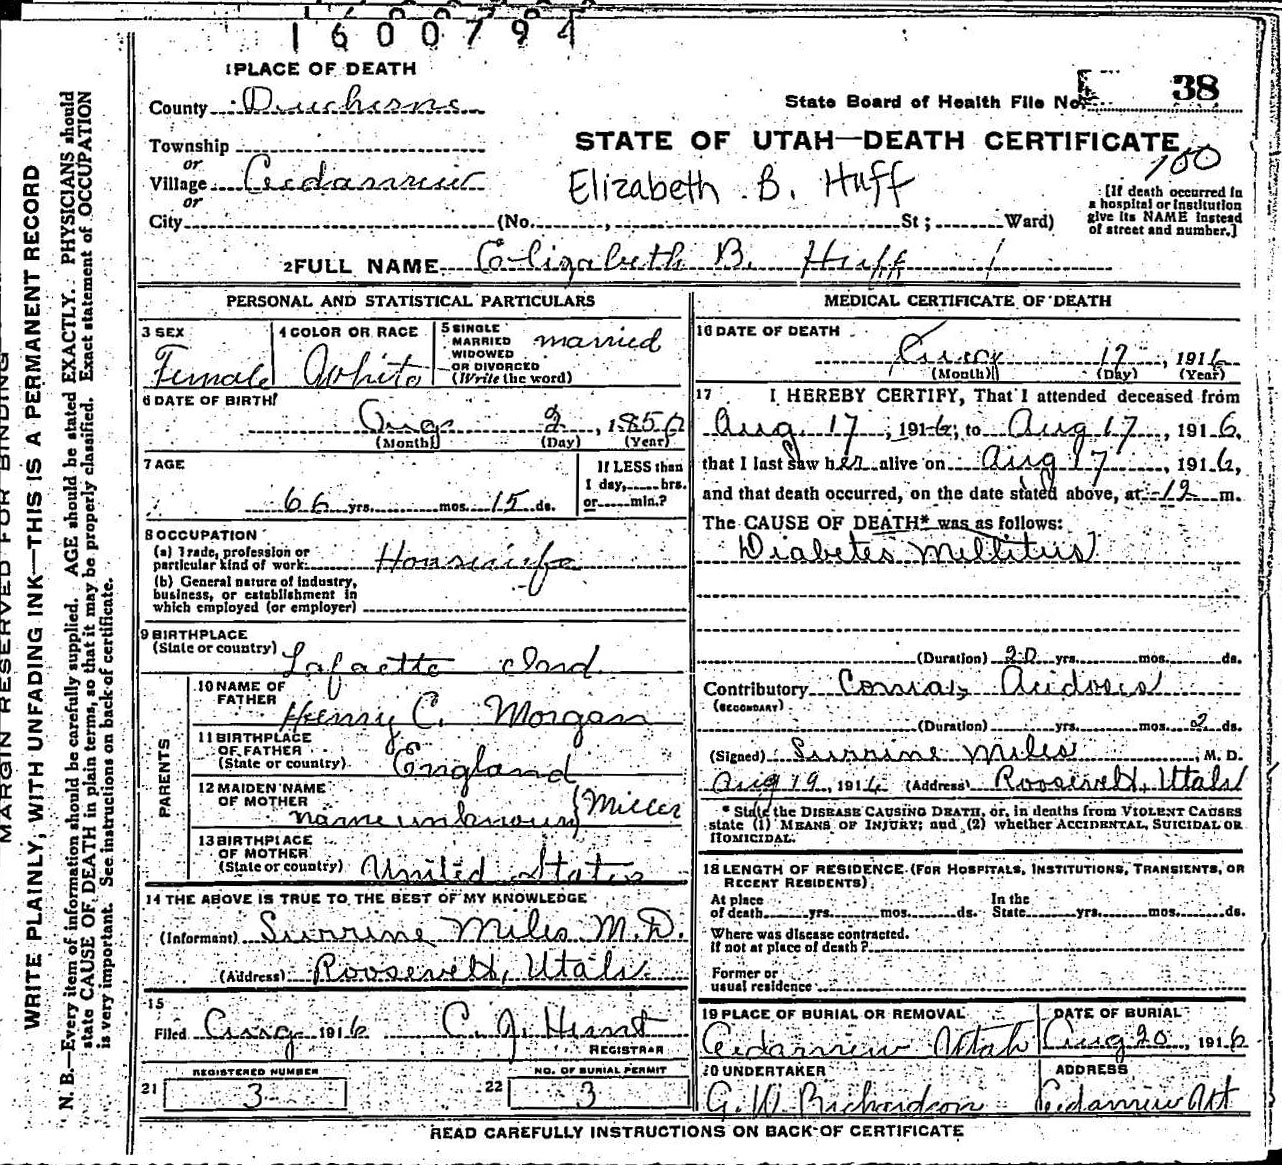 1600794
1 PLACE OF DEATH
County Duchesne
State Board of Health File No. 38
Township
or
Village Cedarview
or
City (No. , St; Ward)
STATE OF UTAH—DEATH CERTIFICATE
100
Elizabeth B. Huff
[If death occurred in
a hospital or institution
give its NAME instead
of street and number.]
2 FULL NAME Elizabeth B. Huff
PERSONAL AND STATISTICAL PARTICULARS
3 SEX
Female
4 COLOR OR RACE
White
5 SINGLE
MARRIED
WIDOWED
OR DIVORCED
(Write the word)
married
6 DATE OF BIRTH
Aug 2, 1850
(Month) (Day) (Year)
7 AGE
66 yrs. mos. 15 ds.
If LESS than
1 day, hrs.
or min.?
8 OCCUPATION
(a) Trade, profession or
particular kind of work: Housewife
(b) General nature of industry,
business, or establishment in
which employed (or employer)
9 BIRTHPLACE
(State or country) Lafaette Ind
PARENTS
10 NAME OF
FATHER
Henry C. Morgan
11 BIRTHPLACE
OF FATHER
(State or country) England
12 MAIDEN NAME
OF MOTHER
name unknown (Miller
13 BIRTHPLACE
OF MOTHER
(State or country) United States
14 THE ABOVE IS TRUE TO THE BEST OF MY KNOWLEDGE
(Informant) Surrine Miles M.D.
(Address) Roosevelt, Utah
15
Filed Aug 1916 C. J. Hunt
REGISTRAR
21 REGISTERED NUMBER
3
22 NO. OF BURIAL PERMIT
3
MEDICAL CERTIFICATE OF DEATH
16 DATE OF DEATH
Aug 17, 1916
(Month) (Day) (Year)
17 I HEREBY CERTIFY, That I attended deceased from
Aug. 17, 1916, to Aug 17, 1916,
that I last saw her alive on Aug 17, 1916,
and that death occurred, on the date stated above, at 12 m.
The CAUSE OF DEATH* was as follows:
Diabetes Mellitus
(Duration) 20 yrs. mos. ds.
Contributory Coma, Acidosis
(SECONDARY)
(Duration) yrs. mos. 2 ds.
(Signed) Surrine Miles, M. D.
Aug 19, 1916 (Address) Roosevelt, Utah
* State the DISEASE CAUSING DEATH, or, in deaths from VIOLENT CAUSES
state (1) MEANS OF INJURY; and (2) whether ACCIDENTAL, SUICIDAL OR
HOMICIDAL.
18 LENGTH OF RESIDENCE (FOR HOSPITALS, INSTITUTIONS, TRANSIENTS, OR
RECENT RESIDENTS)
At place
of death yrs. mos. ds.
In the
State yrs. mos. ds.
Where was disease contracted.
if not at place of death?
Former or
usual residence
19 PLACE OF BURIAL OR REMOVAL
Cedarview Utah
DATE OF BURIAL
Aug 20, 1916
20 UNDERTAKER
G. W. Richardson
ADDRESS
Cedarview Ut
READ CAREFULLY INSTRUCTIONS ON BACK OF CERTIFICATE
MARGIN RESERVED FOR BINDING
WRITE PLAINLY, WITH UNFADING INK—THIS IS A PERMANENT RECORD
N. B.—Every item of information should be carefully supplied. AGE should be stated EXACTLY. PHYSICIANS should
state CAUSE OF DEATH in plain terms, so that it may be properly classified. Exact statement of OCCUPATION
is very important. See instructions on back of certificate.